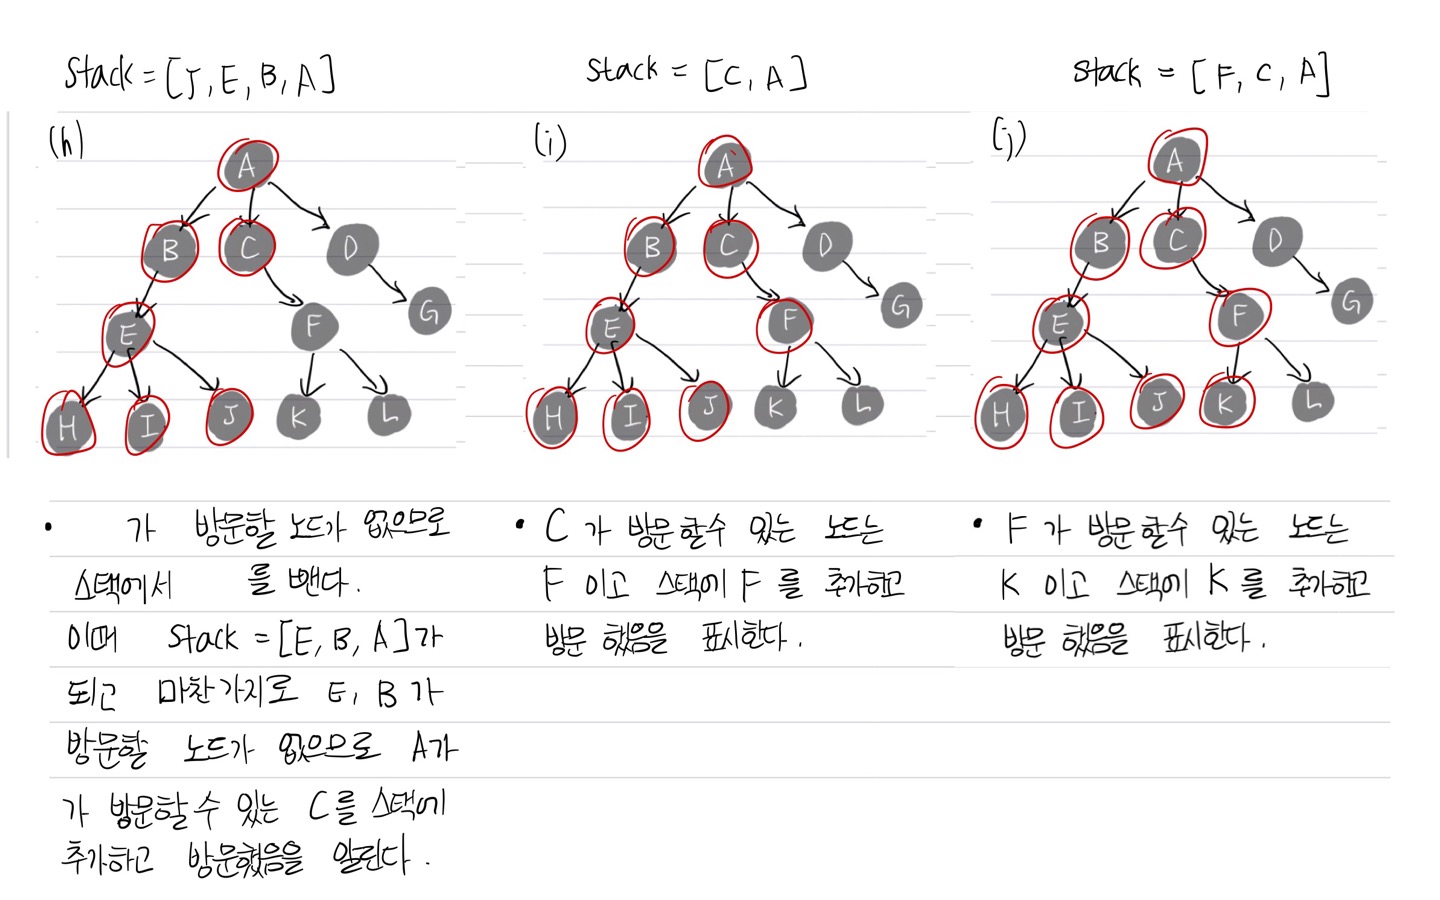 Stack = [J, E, B, A]
(h)
A
B C D
E F G
H I J K L
• 가 방문할 노드가 없으므로
스택에서 를 뺀다.
이때 Stack = [E, B, A]가
되고 마찬가지로 E, B가
방문할 노드가 없으므로 A가
가 방문할 수 있는 C를 스택에
추가하고 방문했음을 알린다.
Stack = [C, A]
(i)
A
B C D
E F G
H I J K L
• C가 방문할수 있는 노드는
F 이고 스택에 F를 추가하고
방문 했음을 표시한다.
Stack = [F, C, A]
(j)
A
B C D
E F G
H I J K L
• F가 방문할수 있는 노드는
K 이고 스택에 K를 추가하고
방문 했음을 표시한다.